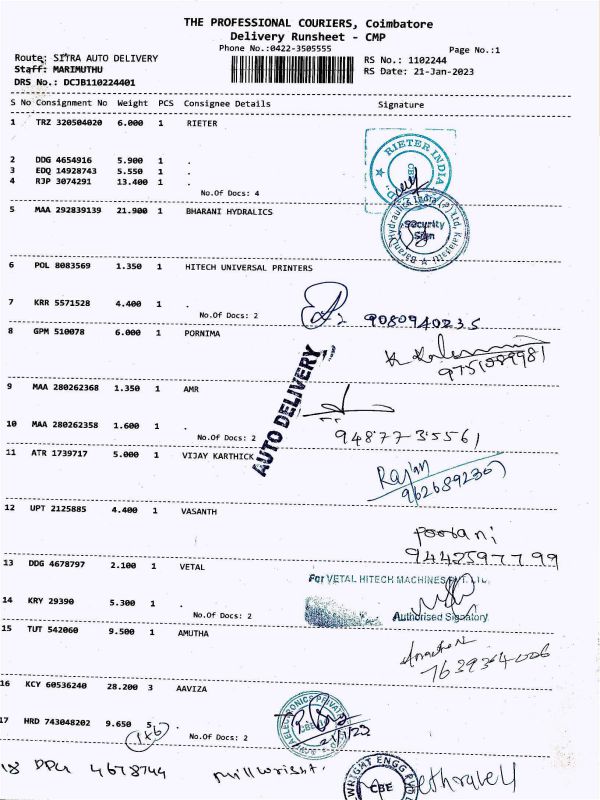 THE PROFESSIONAL COURIERS, Coimbatore
Delivery Runsheet - CMP
Phone No.:0422-3505555
Page No.:1
Route: SITRA AUTO DELIVERY
RS No.: 1102244
Staff: MARIMUTHU
RS Date: 21-Jan-2023
DRS No.: DCJB110224401
S No Consignment No Weight PCS Consignee Details Signature
1 TRZ 320504020 6.000 1 RIETER
RIETER INDIA
2 DDG 4654916 5.900 1 .
3 EDQ 14928743 5.550 1 .
4 RJP 3074291 13.400 1 .
No.Of Docs: 4
5 MAA 292839139 21.900 1 BHARANI HYDRALICS
Security
Sign
6 POL 8083569 1.350 1 HITECH UNIVERSAL PRINTERS
7 KRR 5571528 4.400 1 .
No.Of Docs: 2 9080940235
8 GPM 510078 6.000 1 PORNIMA
AUTO DELIVERY
9 MAA 280262368 1.350 1 AMR
10 MAA 280262358 1.600 1 .
No.Of Docs: 2 9487735561
11 ATR 1739717 5.000 1 VIJAY KARTHICK
Rajan
12 UPT 2125885 4.400 1 VASANTH
9442597799
13 DDG 4678797 2.100 1 VETAL
For VETAL HITECH MACHINES PVT. LTD.
14 KRY 29390 5.300 1 .
No.Of Docs: 2 Authorised Signatory
15 TUT 542060 9.500 1 AMUTHA
16 KCY 60536240 28.200 3 AAVIZA
17 HRD 743048202 9.650 5 .
No.Of Docs: 2
18 4678744 Millwright.
WRIGHT ENGG
CBE